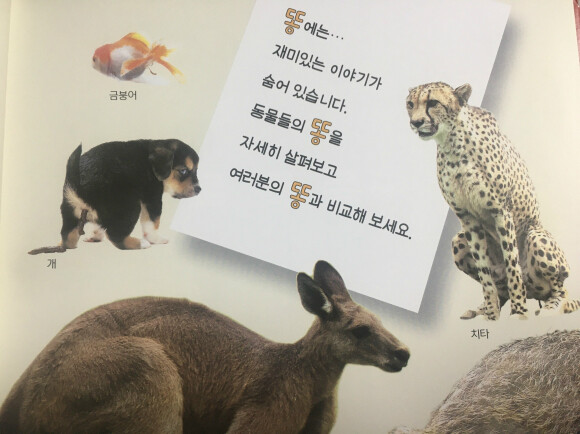 금붕어
똥에는...
재미있는 이야기가
숨어 있습니다.
동물들의 똥을
자세히 살펴보고
여러분의 똥과 비교해 보세요.
개
치타